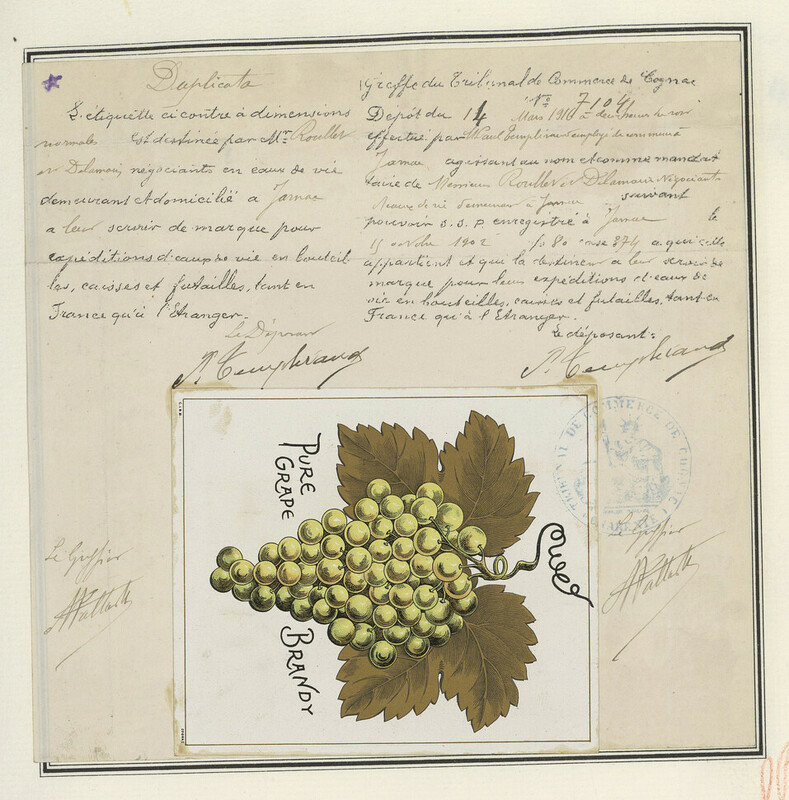 Duplicata
L'étiquette ci contre à dimensions
normales est destinée par Mr Roullet
et Delamain négociants en eaux de vie
demeurant et domicilié à Jarnac
a leur servir de marque pour
expéditions d'eaux de vie en bouteil
les, caisses et futailles, tant en
France qu'à l'Etranger.
Le Déposant
Greffe du Tribunal de Commerce de Cognac
No 7104
Dépôt du 14 Mars 1910 à deux heures du soir
effectué par Paul employé de commerce à
Jarnac agissant au nom et comme manda
taire de Messieurs Roullet et Delamain Négociants
demeurant à Jarnac suivant
pouvoir S.S.P enregistré à Jarnac le
15 1902 fo 80 case 374 a qui elle
appartient et qui la destinent a leur servir de
marque pour leurs expéditions d'eaux de
vie en bouteilles, caisses et futailles, tant en
France qu'à l'Etranger.
Le déposant:
PURE
GRAPE
BRANDY
TRIBUNAL DE COMMERCE DE COGNAC
Le Greffier
Le Greffier